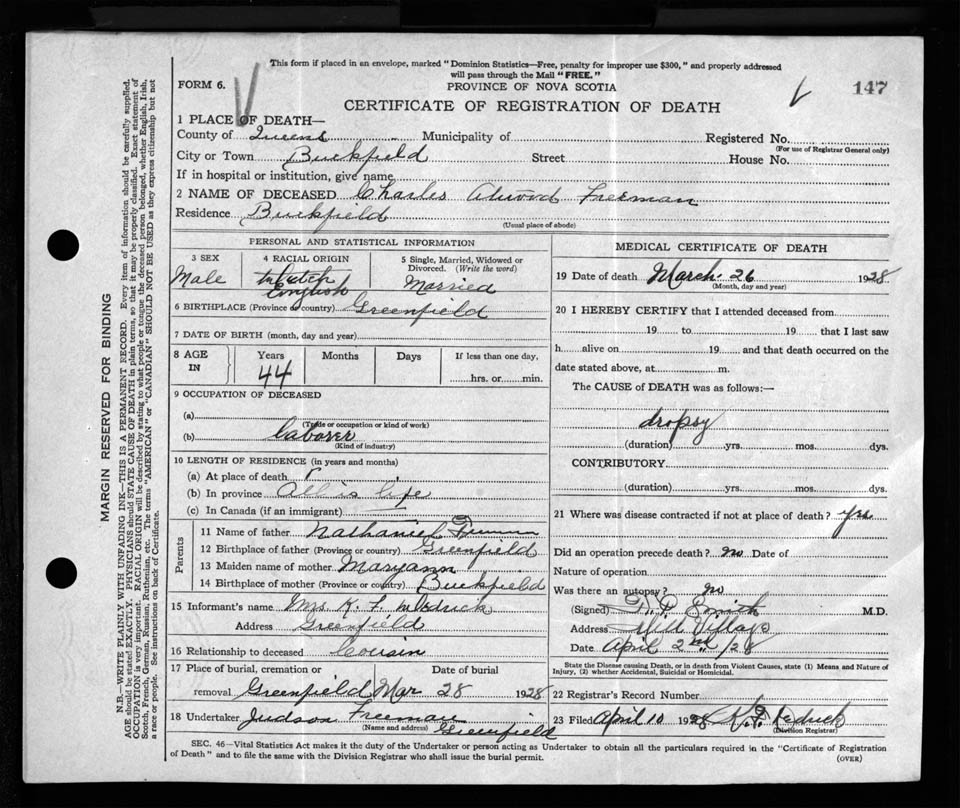 This form if placed in an envelope, marked "Dominion Statistics—Free, penalty for improper use $300," and properly addressed
will pass through the Mail "FREE."
FORM 6.
PROVINCE OF NOVA SCOTIA
147
CERTIFICATE OF REGISTRATION OF DEATH
1 PLACE OF DEATH—
County of Queens Municipality of Registered No.
(For use of Registrar General only)
City or Town Buckfield Street House No.
If in hospital or institution, give name
2 NAME OF DECEASED Charles Atwood Freeman
Residence Buckfield
(Usual place of abode)
PERSONAL AND STATISTICAL INFORMATION
3 SEX
Male
4 RACIAL ORIGIN
English
5 Single, Married, Widowed or
Divorced. (Write the word)
Married
6 BIRTHPLACE (Province or country) Greenfield
7 DATE OF BIRTH (month, day and year)
8 AGE IN
Years Months Days If less than one day,
44 hrs. or min.
9 OCCUPATION OF DECEASED
(a)
(Trade or occupation or kind of work)
(b) Laborer
(Kind of industry)
10 LENGTH OF RESIDENCE (in years and months)
(a) At place of death
(b) In province All is life
(c) In Canada (if an immigrant)
Parents
11 Name of father Nathaniel Freeman
12 Birthplace of father (Province or country) Greenfield
13 Maiden name of mother Maryann
14 Birthplace of mother (Province or country) Buckfield
15 Informant's name Mrs K. F.
Address Greenfield
16 Relationship to deceased Cousin
17 Place of burial, cremation or removal Greenfield
Date of burial
Mar 28 1928
18 Undertaker Judson Freeman
(Name and address) Greenfield
MEDICAL CERTIFICATE OF DEATH
19 Date of death March 26 1928
(Month, day and year)
20 I HEREBY CERTIFY that I attended deceased from
19 to 19 that I last saw
h alive on 19 and that death occurred on the
date stated above, at m.
The CAUSE of DEATH was as follows:—
dropsy
(duration) yrs. mos. dys.
CONTRIBUTORY
(duration) yrs. mos. dys.
21 Where was disease contracted if not at place of death? Yes
Did an operation precede death? no Date of
Nature of operation
Was there an autopsy? no
(Signed) Smith M.D.
Address Mill Village
Date April 2nd /28
State the Disease causing Death, or in death from Violent Causes, state (1) Means and Nature of
Injury, (2) whether Accidental, Suicidal or Homicidal.
22 Registrar's Record Number
23 Filed April 10 1928
(Division Registrar)
SEC. 46—Vital Statistics Act makes it the duty of the Undertaker or person acting as Undertaker to obtain all the particulars required in the "Certificate of Registration
of Death" and to file the same with the Division Registrar who shall issue the burial permit.
(OVER)
MARGIN RESERVED FOR BINDING
N.B.—WRITE PLAINLY WITH UNFADING INK—THIS IS A PERMANENT RECORD. Every item of information should be carefully supplied.
AGE should be stated EXACTLY. PHYSICIANS should STATE CAUSE OF DEATH in plain terms, so that it may be properly classified. Exact statement of
OCCUPATION is very important. RACIAL ORIGIN will be described by stating to what people or tongue the deceased person belonged, whether English, Irish,
Scotch, French, German, Russian, Ruthenian, etc. The terms "AMERICAN" or "CANADIAN" SHOULD NOT BE USED as they express citizenship but not
a race or people. See instructions on back of Certificate.